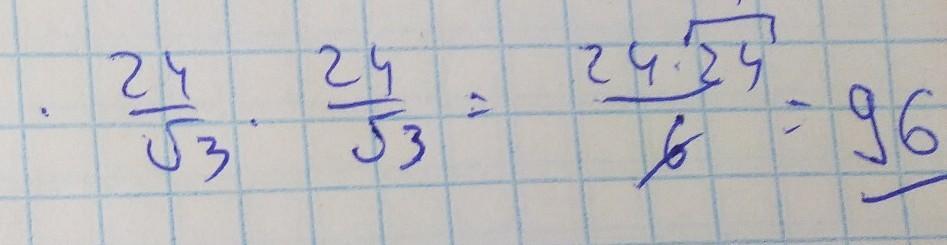 · 24/√3 · 24/√3 = 24·24/6 = 96